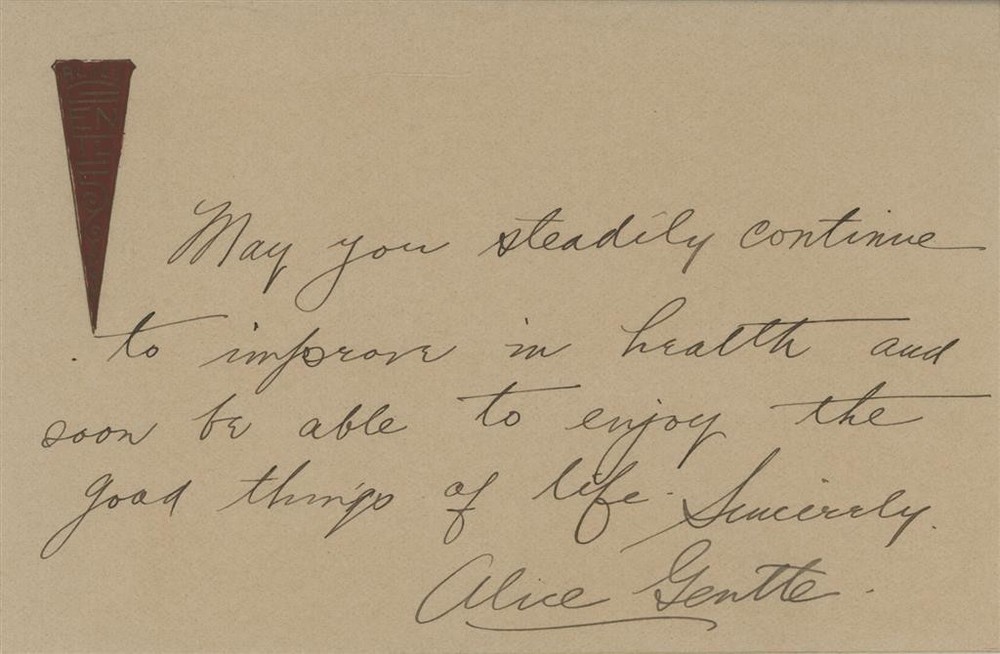 May you steadily continue
to improve in health and
soon be able to enjoy the
good things of life. Sincerely.
Alice Gentle.